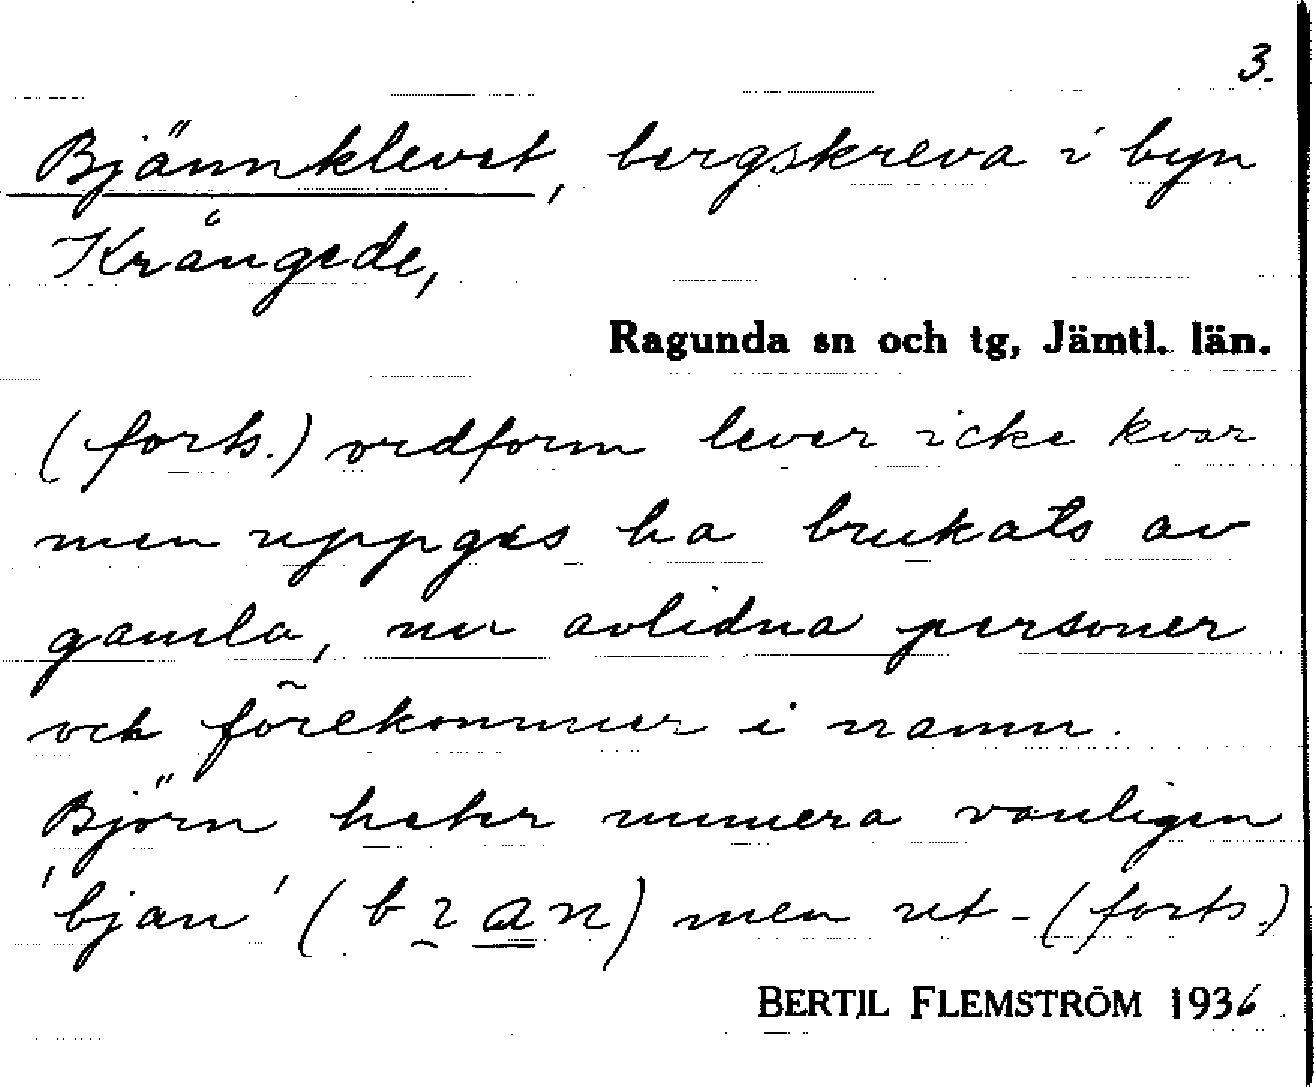 3.
Bjännklevet, bergskreva i byn
Krångede,
Ragunda sn och tg, Jämtl. län.
(forts.) ordform lever icke kvar
men uppges ha brukats av
gamla, nu avlidna personer
och förekommer i namn.
Björn heter numera vanligen
'bjan' (b ɿ a n) men ut- (forts.)
BERTIL FLEMSTRÖM 1936